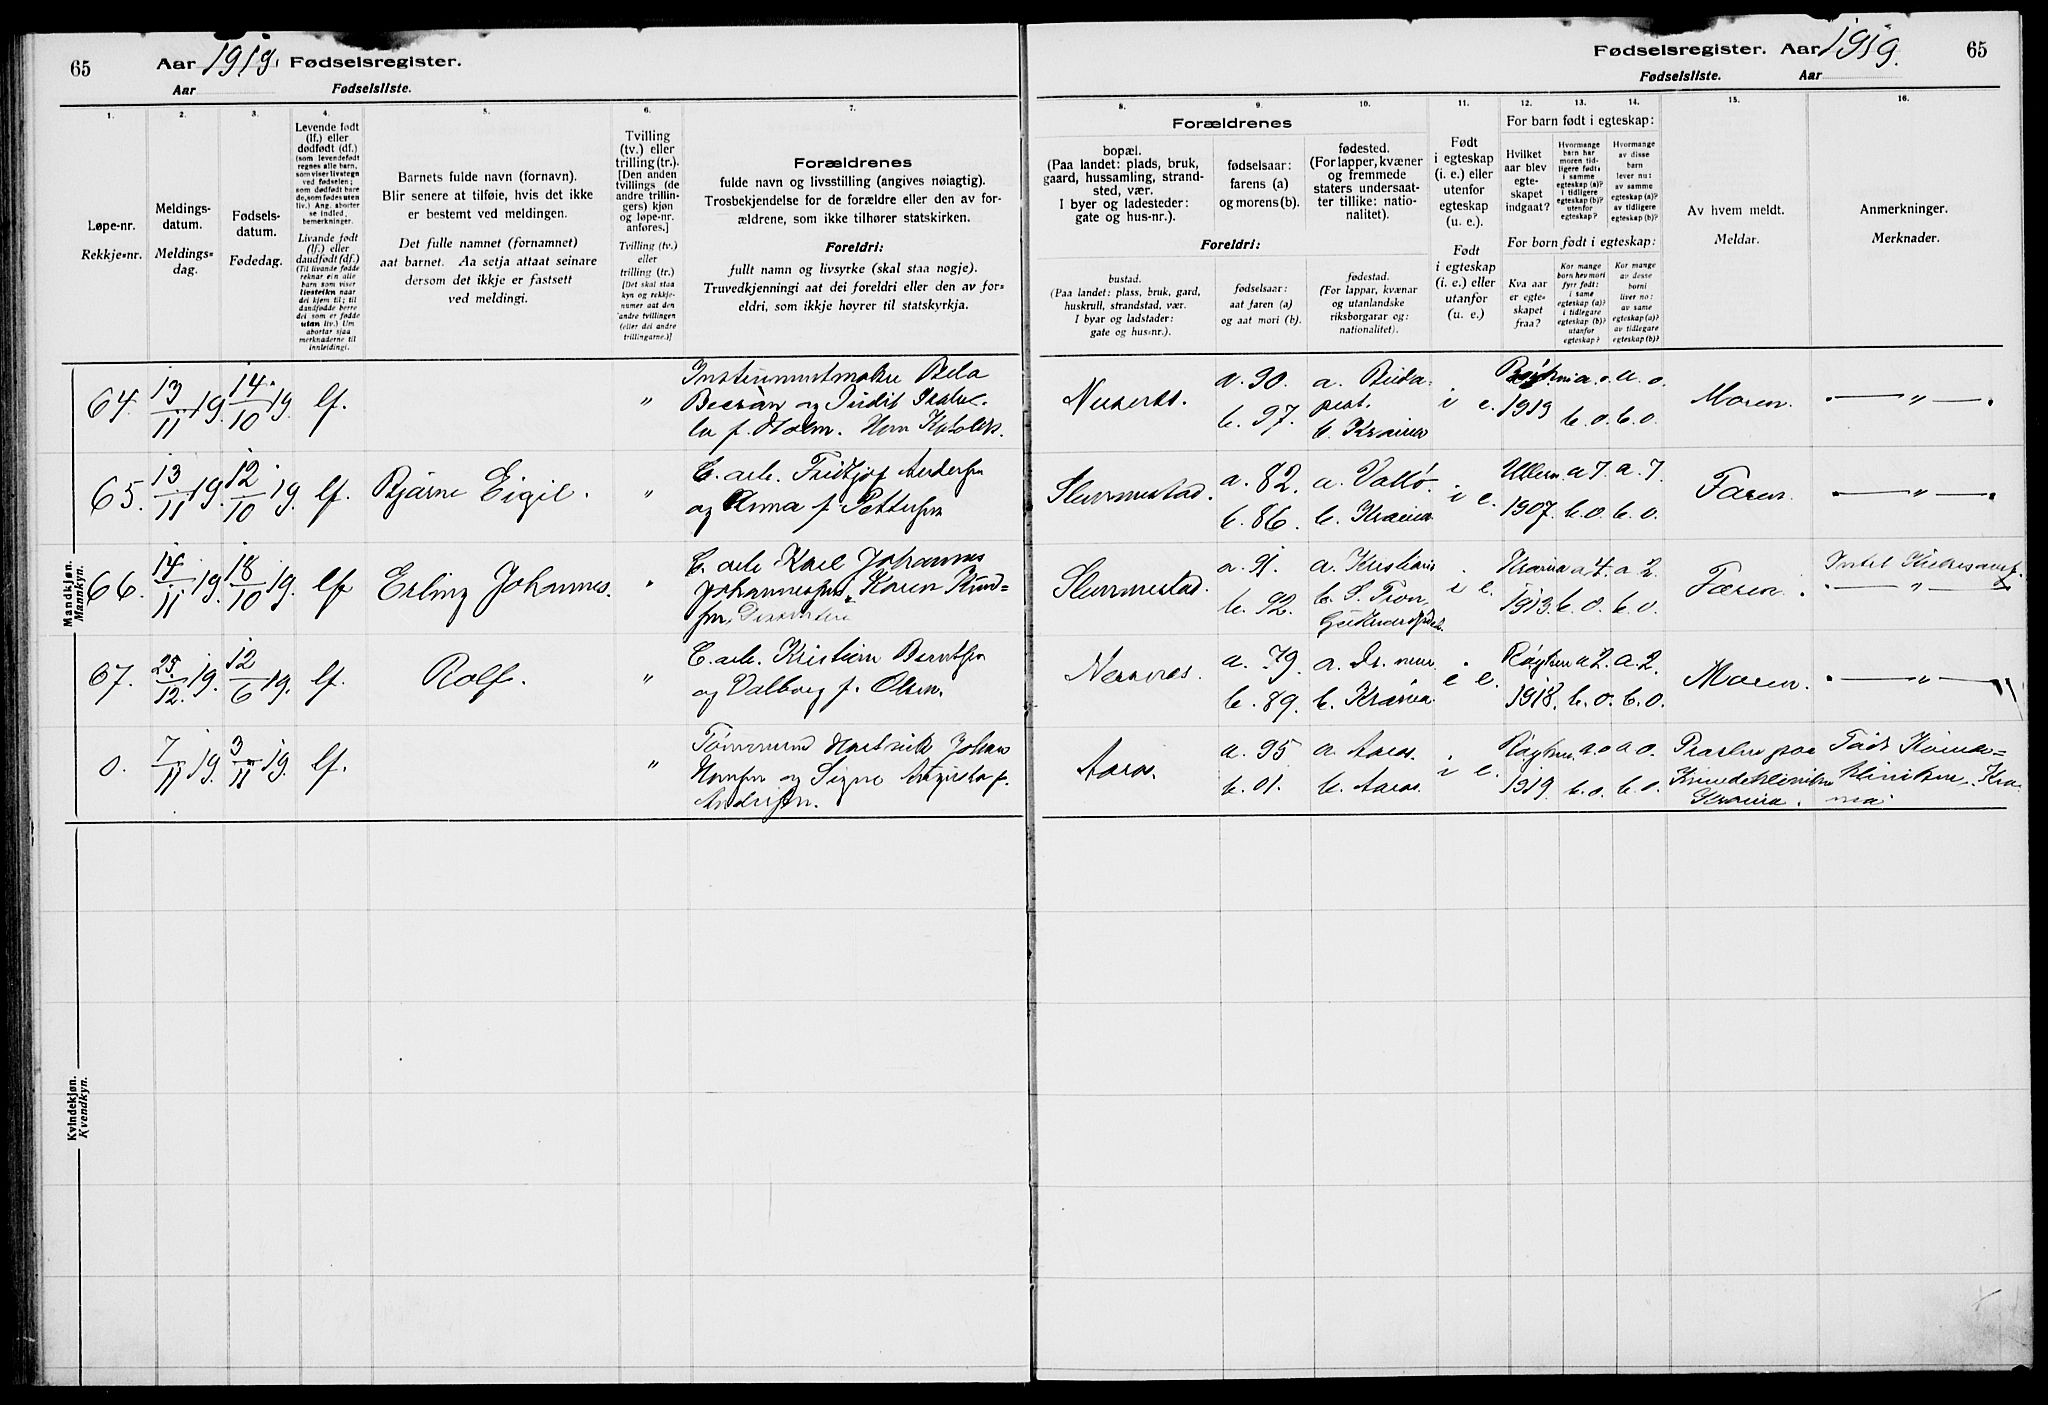 65
Aar 1919. Fødselsregister.
Aar Fødselsliste.
Fødselsregister. Aar 1919.
65
Fødselsliste. Aar
1. 2. 3. 4. 5. 6. 7.
Løpe-nr.
Rekkje-nr.
Meldings-
datum.
Meldings-
dag.
Fødsels-
datum.
Fødedag.
Levende født
(lf.) eller
dødfødt (df.)
(som levendefødt
regnes alle barn,
som viser livstegn
ved fødselen;
som dødfødt bare
de, som fødes uten
liv.) Ang. aborter
se indled.
bemerkninger.
Livande født
(lf.) eller
daudfødt (df.)
(Til livande fødde
reknar ein alle
barn som viser
livsteikn naar
dei kjem til; til
daudfødde berre
dei som er fødde
utan liv.) Um
abortar sjaa
merknaderne til
innleidingi.
Barnets fulde navn (fornavn).
Blir senere at tilføie, hvis det ikke
er bestemt ved meldingen.
Det fulle namnet (fornamnet)
aat barnet. Aa setja attaat seinare
dersom det ikkje er fastsett
ved meldingi.
Tvilling
(tv.) eller
trilling (tr.).
[Den anden
tvillings (de
andre trillin-
gers) kjøn
og løpe-nr.
anføres.]
Tvilling (tv.)
eller
trilling (tr.)
[Det skal staa
kyn og rekkje-
numer aat den
andre tvillingen
(eller dei andre
trillingarne.)]
Forældrenes
fulde navn og livsstilling (angives nøiagtig).
Trosbekjendelse for de forældre eller den av for-
ældrene, som ikke tilhører statskirken.
Foreldri:
fullt namn og livsyrke (skal staa nøgje).
Truvedkjenningi aat dei foreldri eller den av for-
eldri, som ikkje høyrer til statskyrkja.
8. 9. 10. 11. 12. 13. 14. 15. 16.
Forældrenes
bopæl.
(Paa landet: plads, bruk,
gaard, hussamling, strand-
sted, vær.
I byer og ladesteder:
gate og hus-nr.).
fødselsaar:
farens (a)
og morens (b).
fødested.
(For lapper, kvæner
og fremmede
staters undersaat-
ter tillike: natio-
nalitet).
Foreldri:
bustad.
(Paa landet: plass, bruk, gard,
huskrull, strandstad, vær.
I byar og ladstader:
gate og hus-nr.).
fødselsaar:
aat faren (a)
og aat mori (b).
fødestad.
(For lappar, kvænar
og utanlandske
riksborgarar og:
nationalitet).
Født
i egteskap
(i. e.) eller
utenfor
egteskap
(u. e.).
Født
i egteskap
(i. e.) eller
utanfor
(u. e.)
For barn født i egteskap:
Hvilket
aar blev
egte-
skapet
indgaat?
Hvormange
barn har
moren tid-
ligere født:
i samme
egteskap (a)?
i tidligere
egteskap (b)?
utenfor
egteskap?
Hvormange
av disse
barn
lever nu:
av samme
egteskap (a)?
av tidligere
egteskap (b)?
For born født i egteskap:
Kva aar
er egte-
skapet
fraa?
Kor mange
born hev mori
fyrr født:
i same
egteskap (a)?
i tidlegare
egteskap (b)?
utanfor
egteskap?
Kor mange
av desse
borni
liver no:
av same
egteskap (a)?
av tidlegare
egteskap (b)?
Av hvem meldt.
Meldar.
Anmerkninger.
Merknader.
Mandkjøn.
Mannkyn.
64. 13/11 19. 14/10 19. lf. " Instrumentmaker Bela
og Judit
f. Holm. Katolik.
a. 90.
b. 97.
a. Buda-
pest.
b. Krania
i e. 1919 a. o. a. o.
b. o. b. o.
Moren. — " —
65. 13/11 19. 12/10 19. lf. Bjarne Eigil. " C. arb. Fridtjof Andersen
og Anna f. Pettersen
Slemmestad. a. 82.
b. 86.
a. Vallø.
b. Krania
i e. Ullern
1907. a 7 a. 7.
b. o. b. o.
Faren. — " —
66. 14/11 19. 18/10 19. lf Erling Johannes. " C. arb Karl Johannes
Johannessen, Karen Knud-
sen, Dissentere
Slemmestad. a. 91.
b. 92.
a. Kristiania
b. S. Tron-
i e. Krania
1913. a 4. a 2.
b. o. b. o.
Faren. — " —
67. 25./12. 19. 12/6 19. lf. Rolf. " C. arb. Kristian Berntsen
og Valborg f. Olsen.
Nærsnes. a. 79.
b. 89.
b. Krania.
i e. Røyken
1918. a 2. a. 2
b. o. b. o.
Moren. — " —
0. 7/11 19. 3/11 19. lf. " Tømmermd Hartvik Johan
Hansen og Signe Augusta f.
Andersen.
Aaros. a. 95
b. 01.
a. Aaros.
b. Aaros.
i e. Røyken
1919. a. o a o.
b. o. b. o.
Presten paa
Kvindeklinikken
Krania.
Født Kvinde-
kliniken, Kra-
nia.
Kvindekjøn.
Kvendkyn.